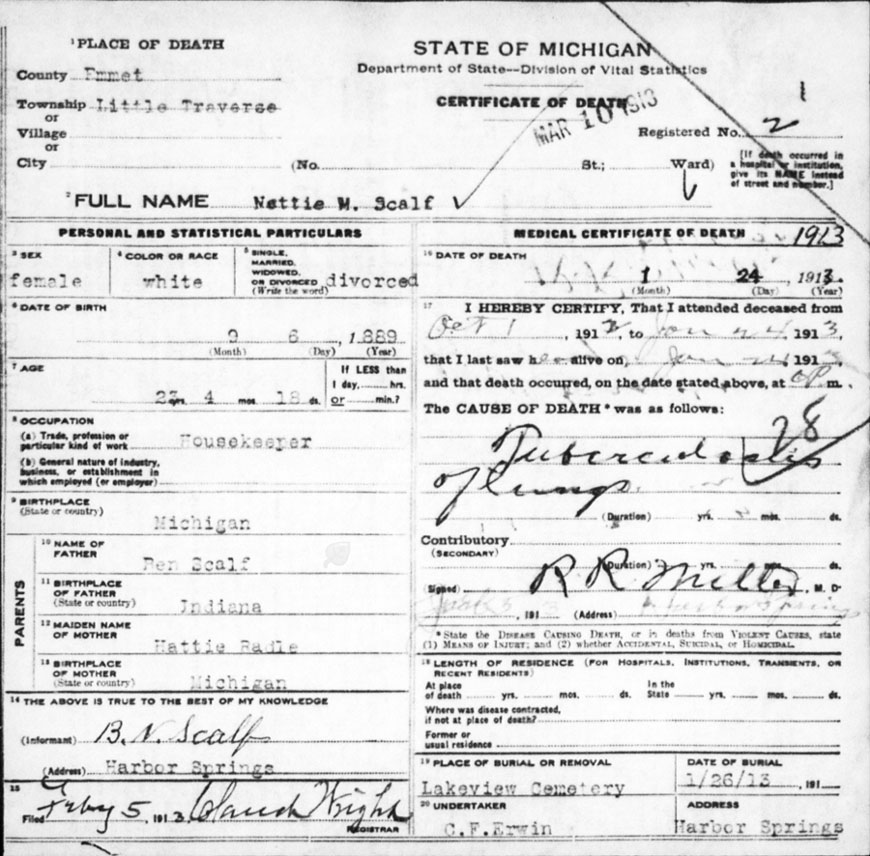 1 PLACE OF DEATH
County Emmet
Township Little Traverse
or
Village
or
City (No. St.; Ward)
STATE OF MICHIGAN
Department of State--Division of Vital Statistics
CERTIFICATE OF DEATH
MAR 10 1913
1
Registered No. 2
[If death occurred in a hospital or institution, give its NAME instead of street and number.]
2 FULL NAME Nettie M. Scalf
PERSONAL AND STATISTICAL PARTICULARS
3 SEX
female
4 COLOR OR RACE
white
5 SINGLE, MARRIED, WIDOWED, OR DIVORCED (Write the word) divorced
6 DATE OF BIRTH
9 6 , 1889
(Month) (Day) (Year)
7 AGE
23 yrs. 4 mos. 18 ds.
If LESS than
1 day, hrs.
or min.?
8 OCCUPATION
(a) Trade, profession or
particular kind of work Housekeeper
(b) General nature of industry,
business, or establishment in
which employed (or employer)
9 BIRTHPLACE
(State or country)
Michigan
PARENTS
10 NAME OF
FATHER
Ben Scalf
11 BIRTHPLACE
OF FATHER
(State or country) Indiana
12 MAIDEN NAME
OF MOTHER
Hattie Radle
13 BIRTHPLACE
OF MOTHER
(State or country) Michigan
14 THE ABOVE IS TRUE TO THE BEST OF MY KNOWLEDGE
(Informant) B. N. Scalf
(Address) Harbor Springs
15
Filed Feby 5, 1913 Claud Wright
REGISTRAR
MEDICAL CERTIFICATE OF DEATH 1913
16 DATE OF DEATH
1 24 , 1913.
(Month) (Day) (Year)
17 I HEREBY CERTIFY, That I attended deceased from
Oct 1 , 1912, to Jan 24 1913
that I last saw h alive on, Jan 24 1913
and that death occurred, on the date stated above, at m.
The CAUSE OF DEATH * was as follows:
28
Tuberculosis
of lungs.
(Duration) yrs. mos. ds.
Contributory
(SECONDARY)
(Duration) yrs. mos. ds.
(Signed) R R Miller, M. D.
, 191 3 (Address) Harbor Springs
* State the DISEASE CAUSING DEATH, or in deaths from VIOLENT CAUSES, state
(1) MEANS OF INJURY; and (2) whether ACCIDENTAL, SUICIDAL, or HOMICIDAL.
18 LENGTH OF RESIDENCE (FOR HOSPITALS, INSTITUTIONS, TRANSIENTS, OR
RECENT RESIDENTS)
At place
of death yrs. mos. ds.
In the
State yrs. mos. ds.
Where was disease contracted,
if not at place of death?
Former or
usual residence
19 PLACE OF BURIAL OR REMOVAL
Lakeview Cemetery
DATE OF BURIAL
1/26/13 , 191
20 UNDERTAKER
C.F.Erwin
ADDRESS
Harbor Springs